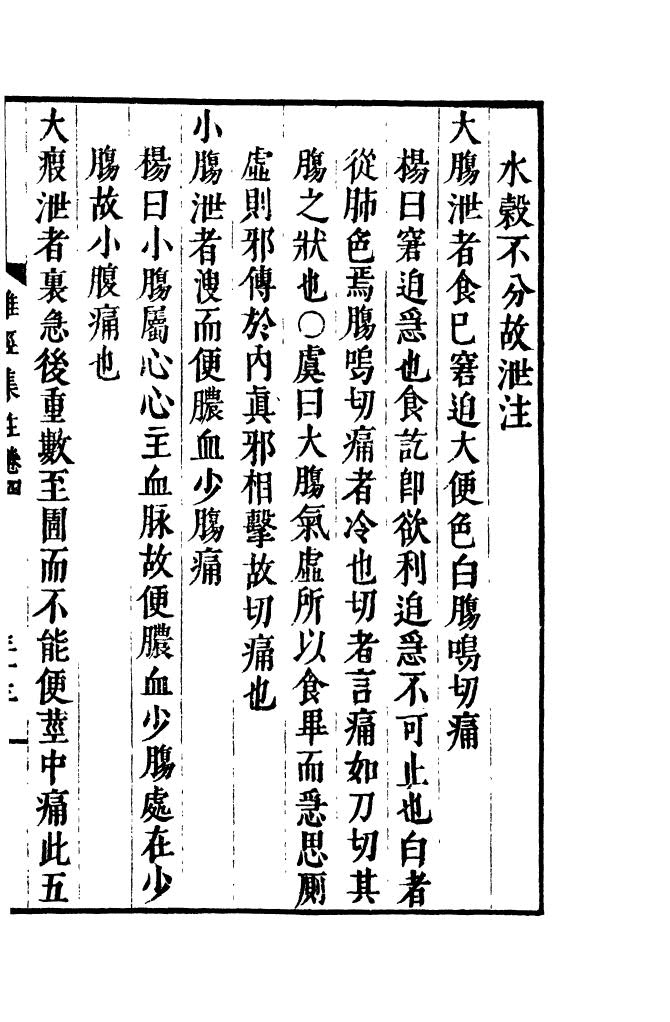 水穀不分故泄注
大腸泄者食已窘迫大便色白腸鳴切痛
楊曰窘迫急也食訖卽欲利迫急不可止也白者
從肺色焉腸鳴切痛者冷也切者言痛如刀切其
腸之狀也○虞曰大腸氣虛所以食畢而急思厠
虛則邪傳於內眞邪相擊故切痛也
小腸泄者溲而便膿血少腸痛
楊曰小腸屬心心主血脉故便膿血少腸處在少
腸故小腹痛也
大瘕泄者裏急後重數至圊而不能便莖中痛此五
難經集注卷四